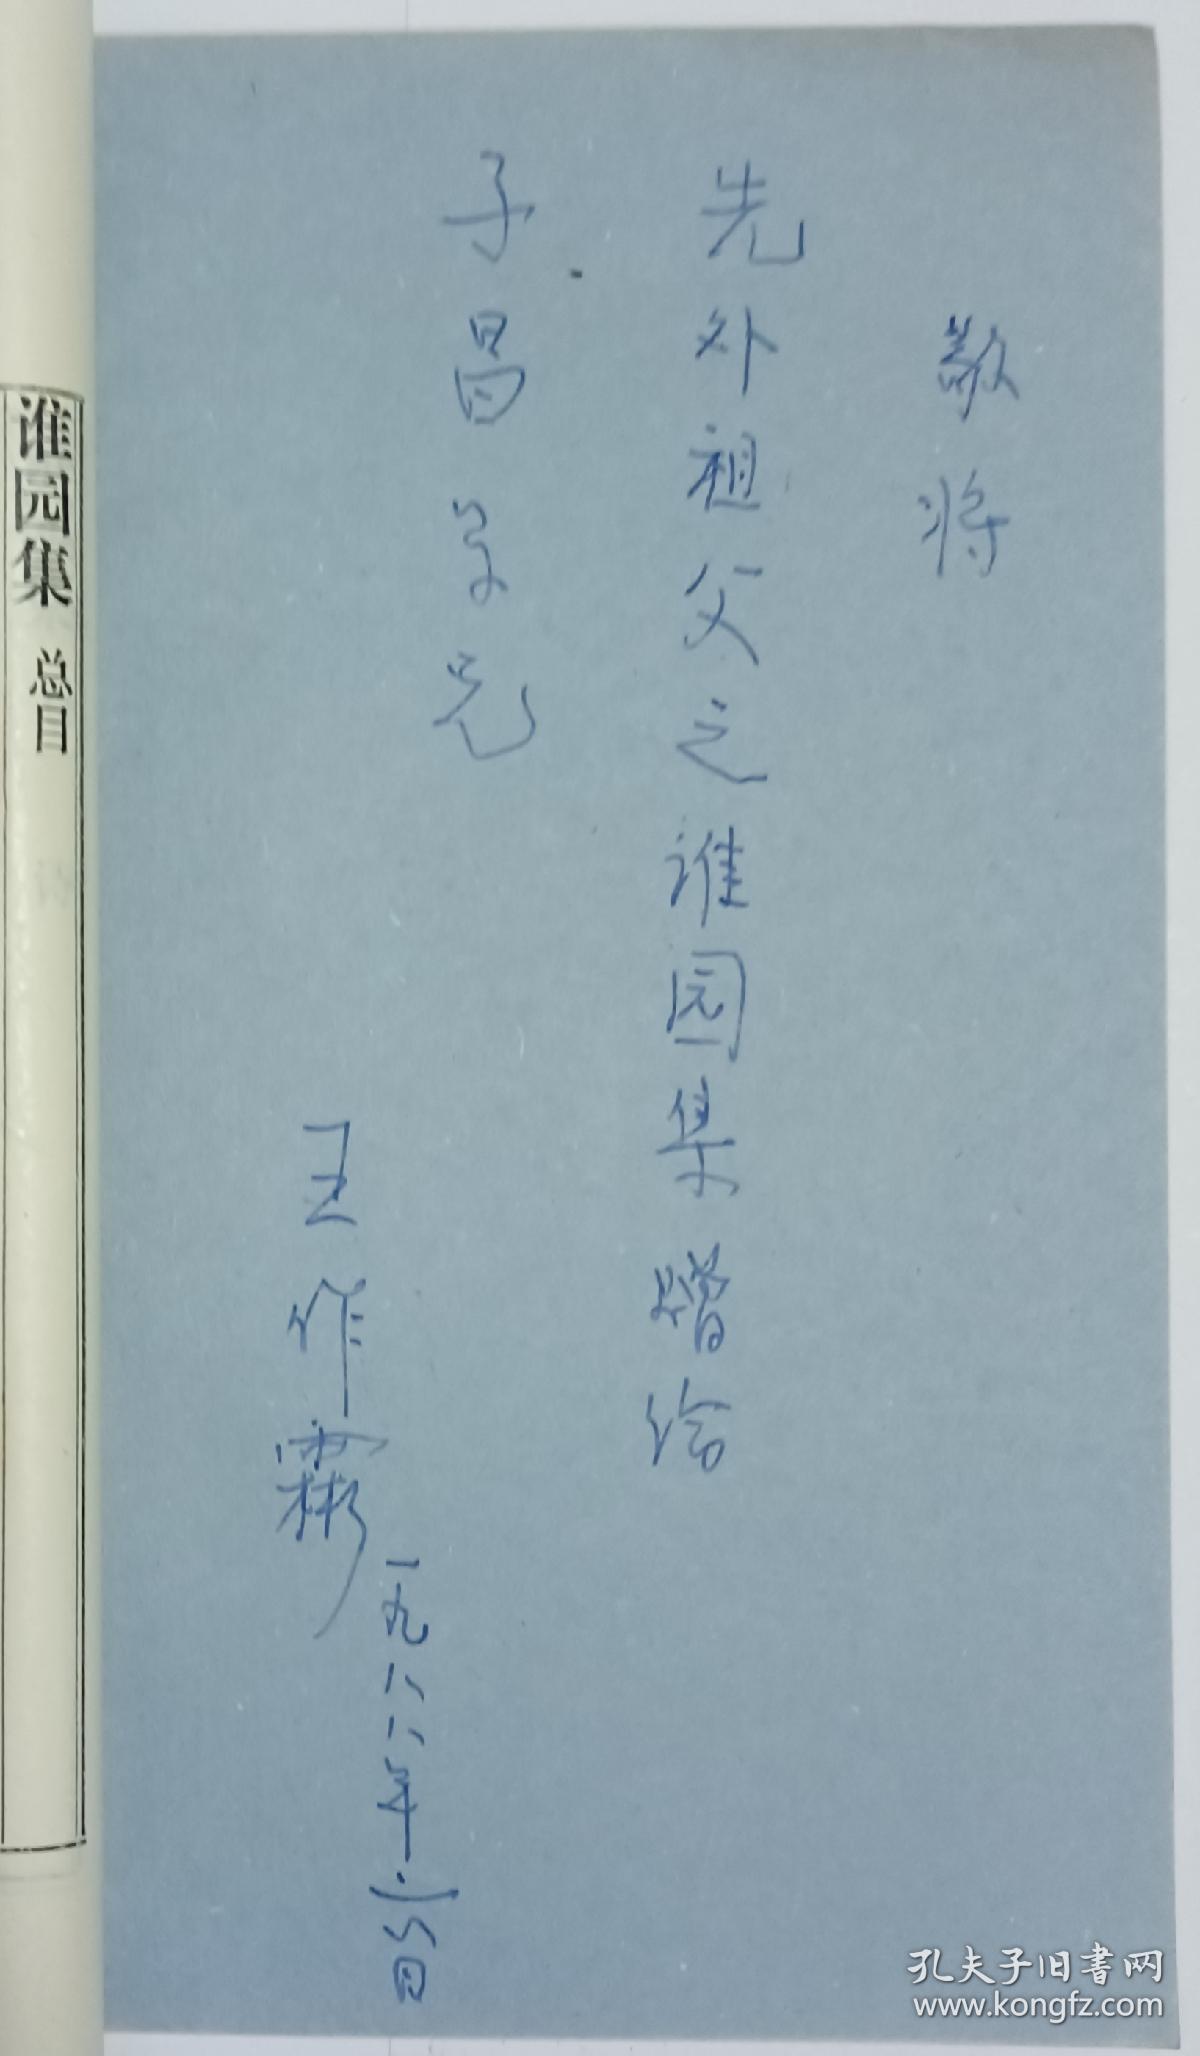 敬将
先外祖父之谁园集赠给
子昌学兄
王作霦
一九八八年
谁园集 总目
孔夫子旧书网
www.kongfz.com